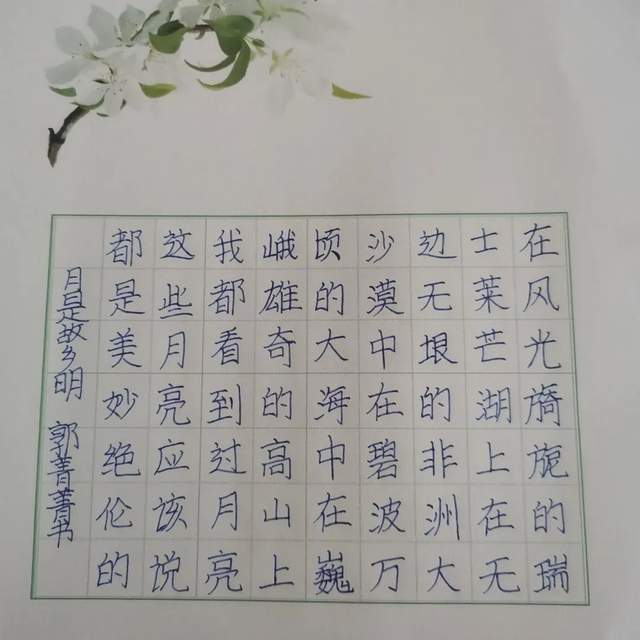 在风光旖旎的瑞
士莱芒湖上在无
边无垠的非洲大
沙漠中在碧波万
顷的大海中在巍
峨雄奇的高山上
我都看到过月亮
这些月亮应该说
都是美妙绝伦的
月是故乡明 郭菁菁书